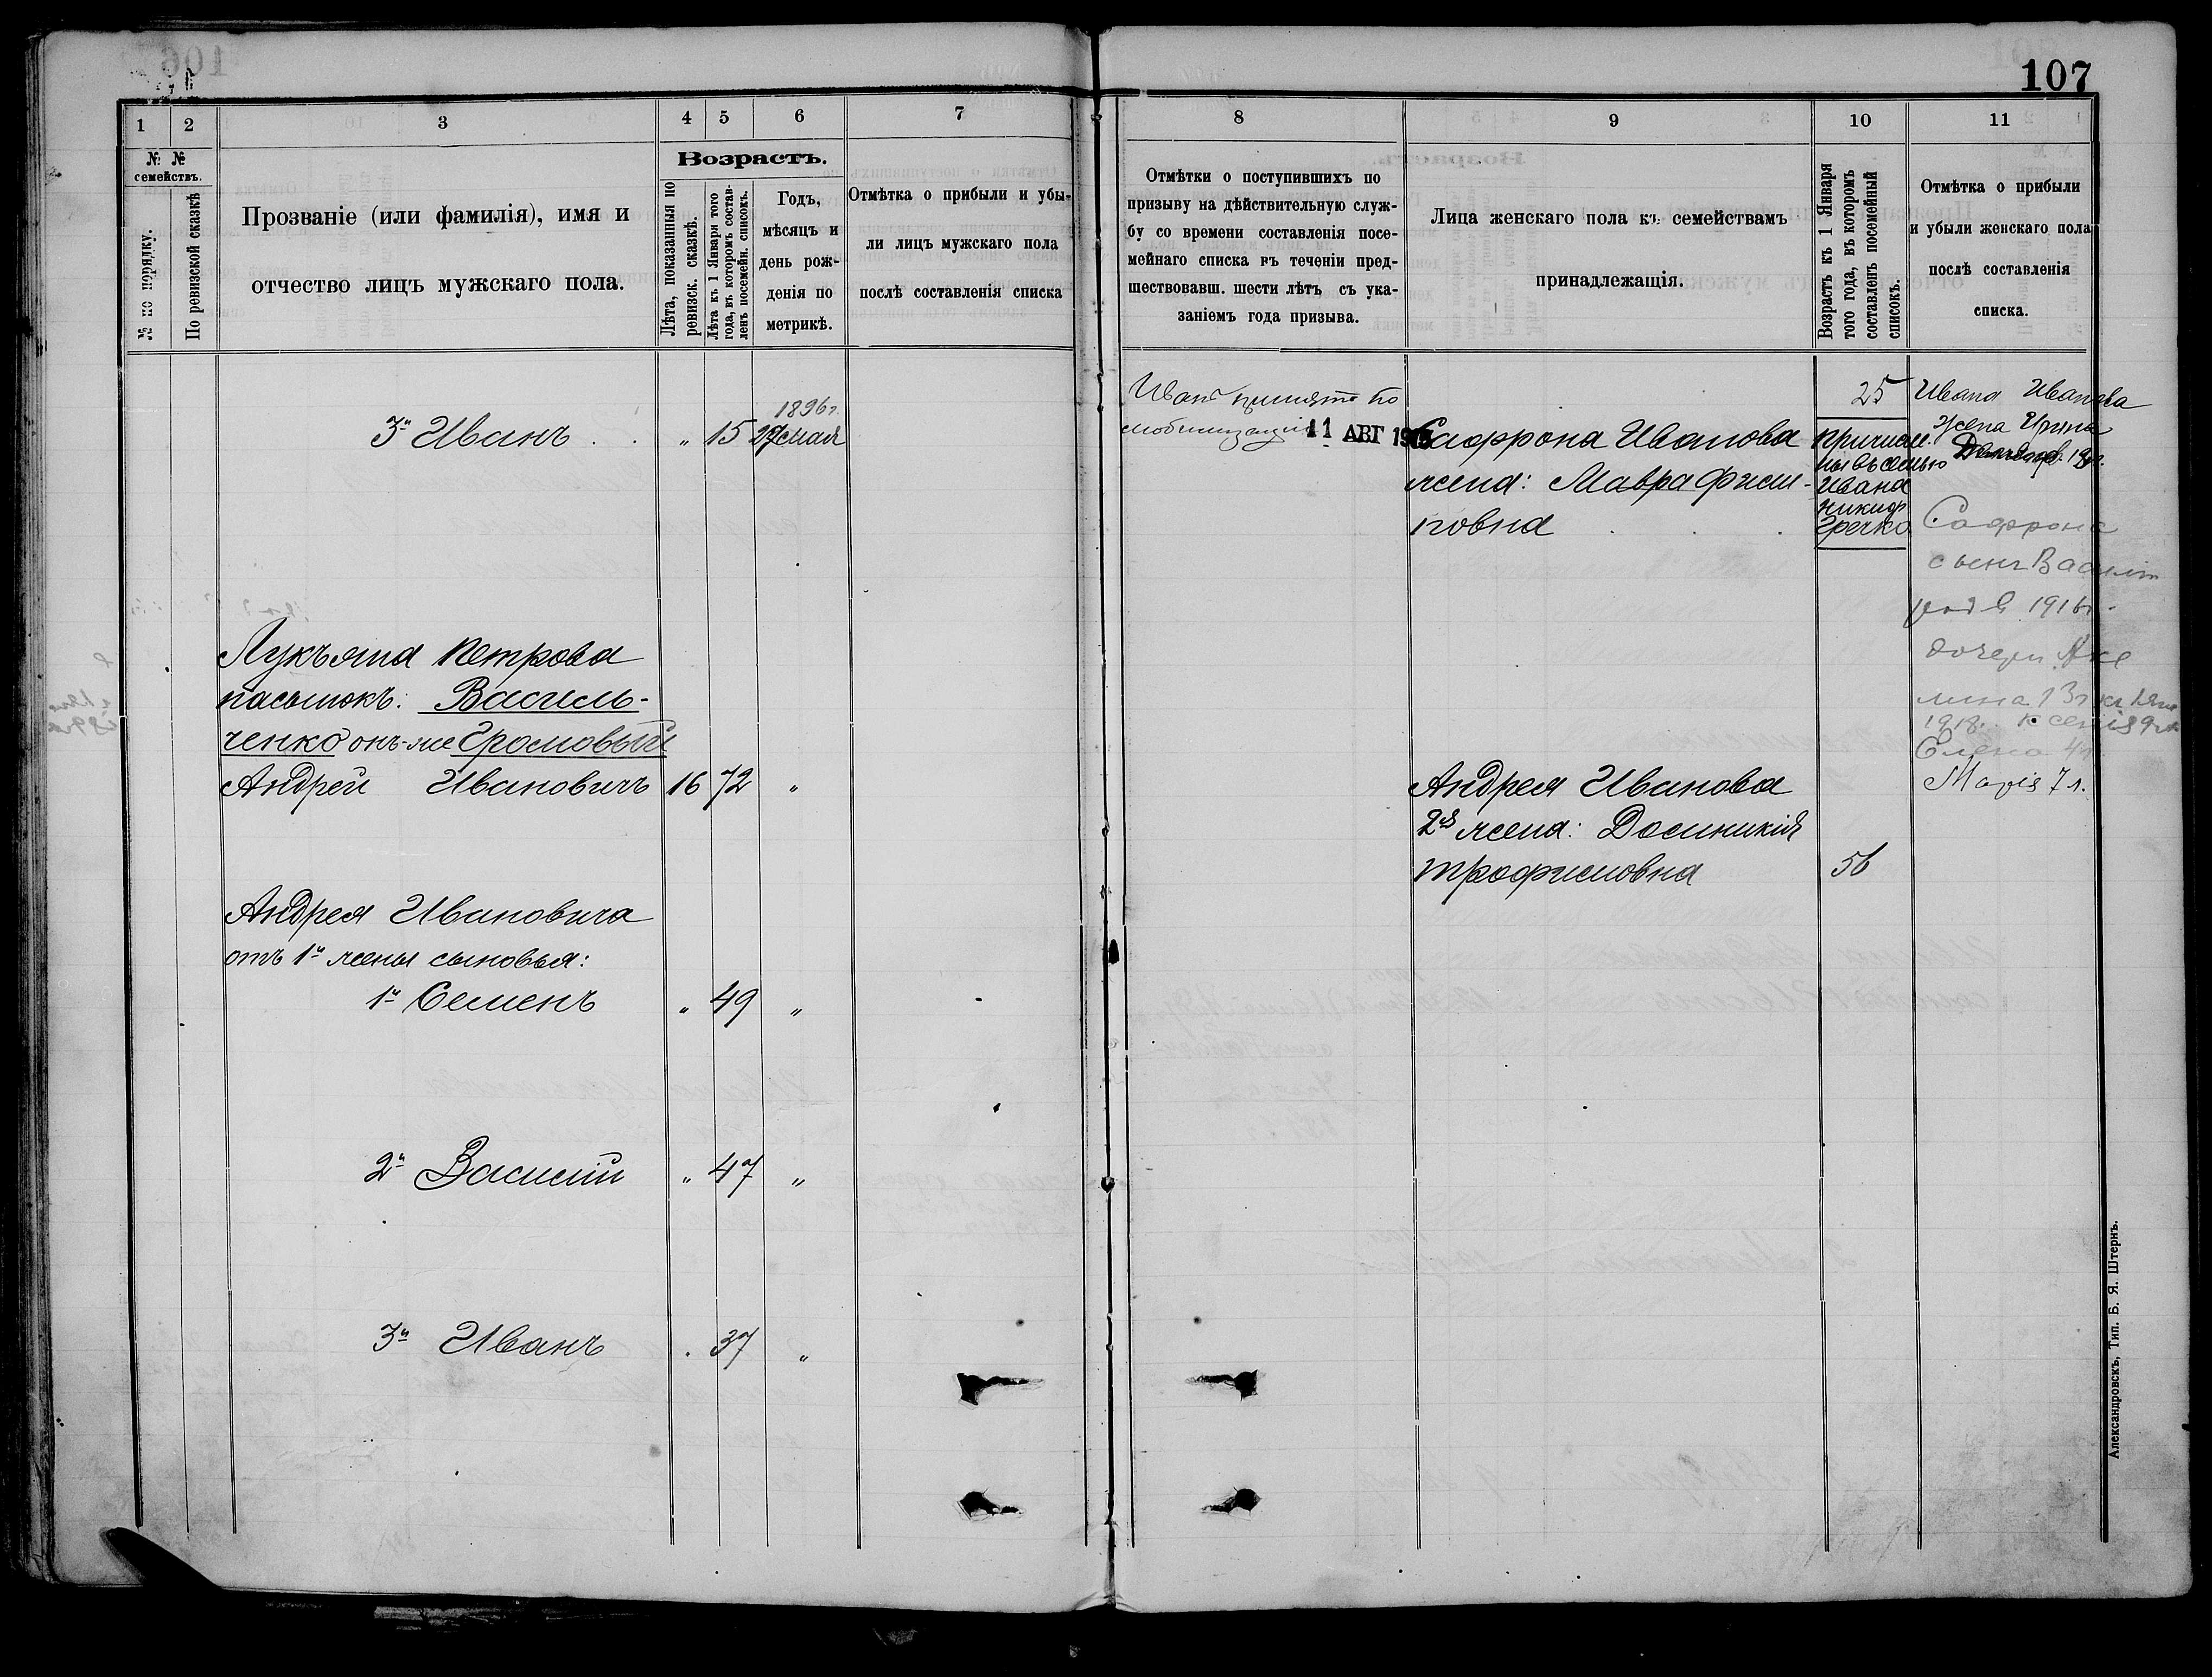 107
1 2 3 4 5 6 7
№ № семействъ.
№ по порядку.
По ревизской сказкѣ
Прозваніе (или фамилія), имя и
отчество лицъ мужскаго пола.
Возрастъ.
Лѣта, показанныя по
ревизск. сказкѣ.
Лѣта къ 1 Января того
года, въ которомъ состав-
ленъ посемейн. списокъ.
Годъ,
мѣсяцъ и
день рож-
денія по
метрикѣ.
Отмѣтка о прибыли и убы-
ли лицъ мужскаго пола
послѣ составленія списка
3й Иванъ . . „ 15 1896г.
27 мая
Лукъяна Петрова
пасынокъ: Василь-
ченко онъ-же Громовый
Андрей Ивановичъ 16 72 „
Андрея Ивановича
отъ 1й жены сыновья:
1й Семенъ „ 49 „
2й Василий „ 47 „
3й Иванъ . 37 „
8 9 10 11
Отмѣтки о поступившихъ по
призыву на дѣйствительную служ-
бу со времени составленія посе-
мейнаго списка въ теченіи пред-
шествовавш. шести лѣтъ, съ ука-
заніемъ года призыва.
Лица женскаго пола къ семействамъ
принадлежащія.
Возрастъ къ 1 Января
того года, въ которомъ
составленъ посемейный
списокъ.
Отмѣтка о прибыли
и убыли женскаго пола
послѣ составленія
списка.
Иванъ принятъ по
мобилизаціи 11 АВГ
Сафрона Иванова
жена: Мавра Фили-
повна . .
25
причисле-
ны въ семью
Ивана
Никиф
Гречко
Ивана Иванова
Жена Ирина
Сафрона
сынъ Василій
род в 1916г.
дочери Аке
лина 13л къ 1 Янв
1918г. Ксенія 9 л
Елена 4л.
Марія 7 л.
Андрея Иванова
2я жена: Доминикія
Трофимовна 56
Александровскъ, Тип. Б. Я. Штернъ.